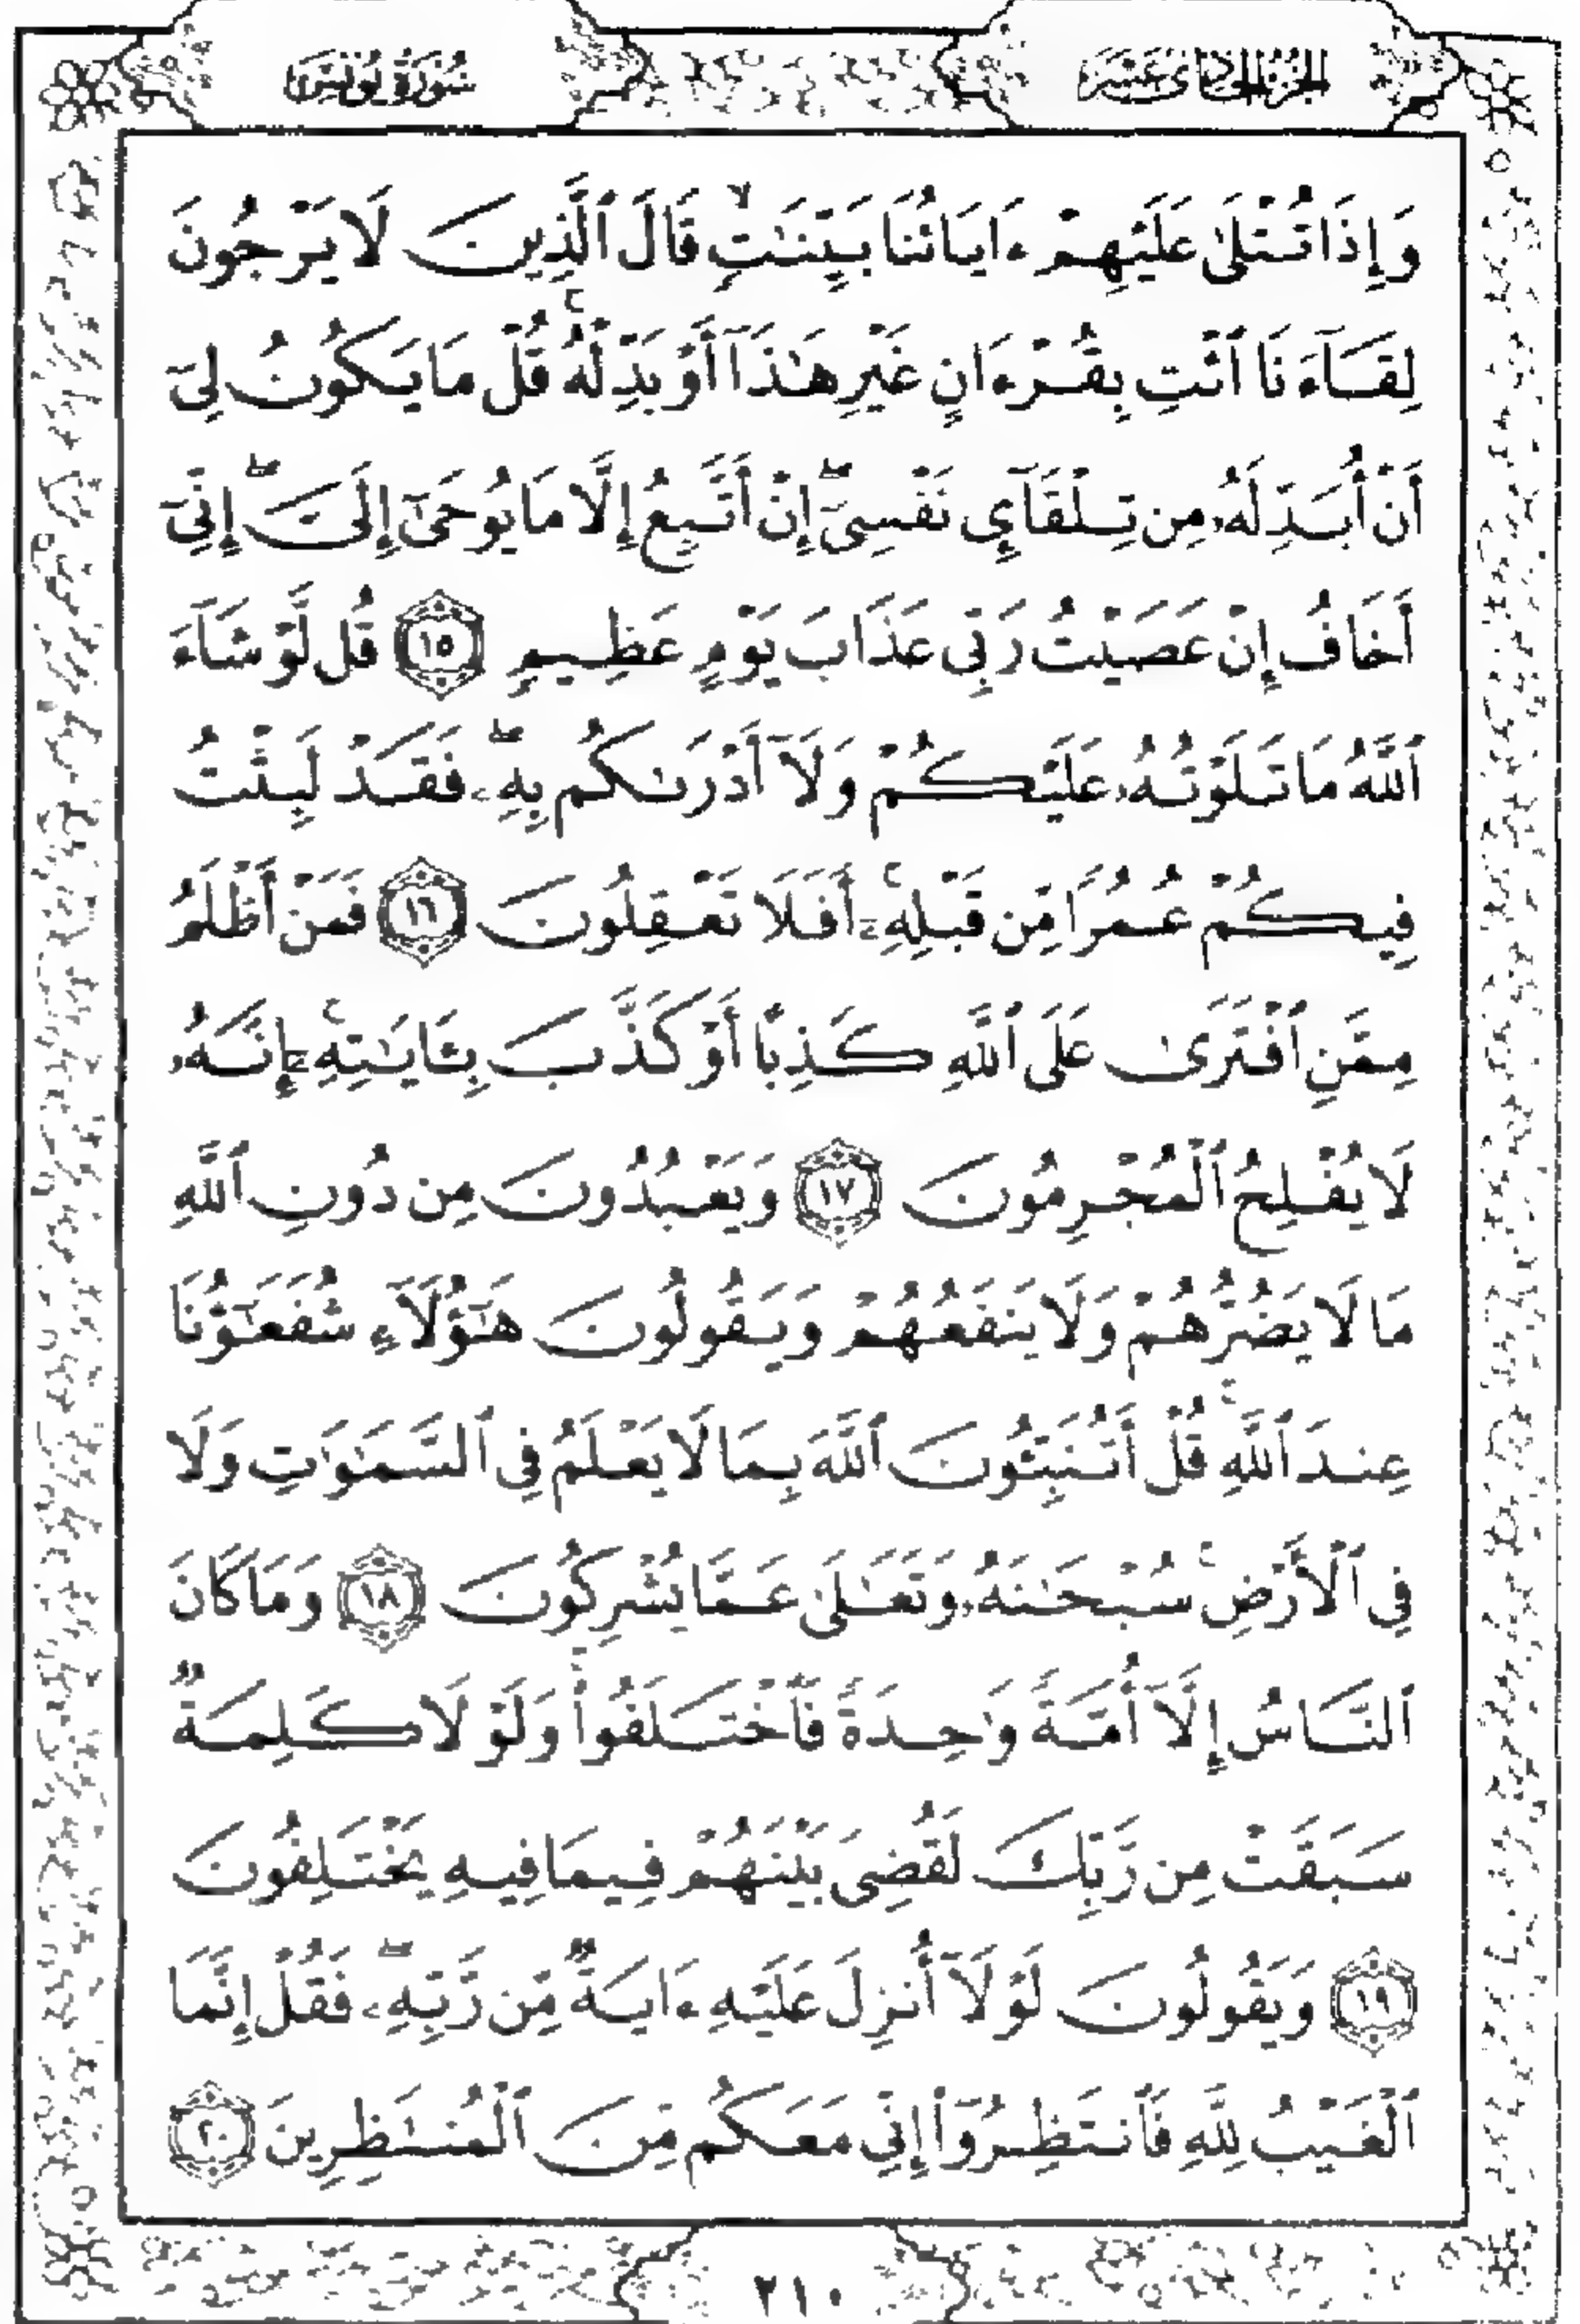 الجزء الحادي عشر
سورة يونس
وَإِذَا تُتْلَىٰ عَلَيْهِمْ ءَايَاتُنَا بَيِّنَـٰتٍ ۙ قَالَ ٱلَّذِينَ لَا يَرْجُونَ
لِقَآءَنَا ٱئْتِ بِقُرْءَانٍ غَيْرِ هَـٰذَآ أَوْ بَدِّلْهُ ۚ قُلْ مَا يَكُونُ لِىٓ
أَنْ أُبَدِّلَهُۥ مِن تِلْقَآئِ نَفْسِىٓ ۖ إِنْ أَتَّبِعُ إِلَّا مَا يُوحَىٰٓ إِلَىَّ ۖ إِنِّىٓ
أَخَافُ إِنْ عَصَيْتُ رَبِّى عَذَابَ يَوْمٍ عَظِيمٍ ١٥ قُل لَّوْ شَآءَ
ٱللَّهُ مَا تَلَوْتُهُۥ عَلَيْكُمْ وَلَآ أَدْرَىٰكُم بِهِۦ ۖ فَقَدْ لَبِثْتُ
فِيكُمْ عُمُرًا مِّن قَبْلِهِۦٓ ۚ أَفَلَا تَعْقِلُونَ ١٦ فَمَنْ أَظْلَمُ
مِمَّنِ ٱفْتَرَىٰ عَلَى ٱللَّهِ كَذِبًا أَوْ كَذَّبَ بِـَٔايَـٰتِهِۦٓ ۚ إِنَّهُۥ
لَا يُفْلِحُ ٱلْمُجْرِمُونَ ١٧ وَيَعْبُدُونَ مِن دُونِ ٱللَّهِ
مَا لَا يَضُرُّهُمْ وَلَا يَنفَعُهُمْ وَيَقُولُونَ هَـٰٓؤُلَآءِ شُفَعَـٰٓؤُنَا
عِندَ ٱللَّهِ ۚ قُلْ أَتُنَبِّـُٔونَ ٱللَّهَ بِمَا لَا يَعْلَمُ فِى ٱلسَّمَـٰوَٰتِ وَلَا
فِى ٱلْأَرْضِ ۚ سُبْحَـٰنَهُۥ وَتَعَـٰلَىٰ عَمَّا يُشْرِكُونَ ١٨ وَمَا كَانَ
ٱلنَّاسُ إِلَّآ أُمَّةً وَٰحِدَةً فَٱخْتَلَفُوا۟ ۚ وَلَوْلَا كَلِمَةٌ
سَبَقَتْ مِن رَّبِّكَ لَقُضِىَ بَيْنَهُمْ فِيمَا فِيهِ يَخْتَلِفُونَ
١٩ وَيَقُولُونَ لَوْلَآ أُنزِلَ عَلَيْهِ ءَايَةٌ مِّن رَّبِّهِۦ ۖ فَقُلْ إِنَّمَا
ٱلْغَيْبُ لِلَّهِ فَٱنتَظِرُوٓا۟ إِنِّى مَعَكُم مِّنَ ٱلْمُنتَظِرِينَ ٢٠
٢١٠